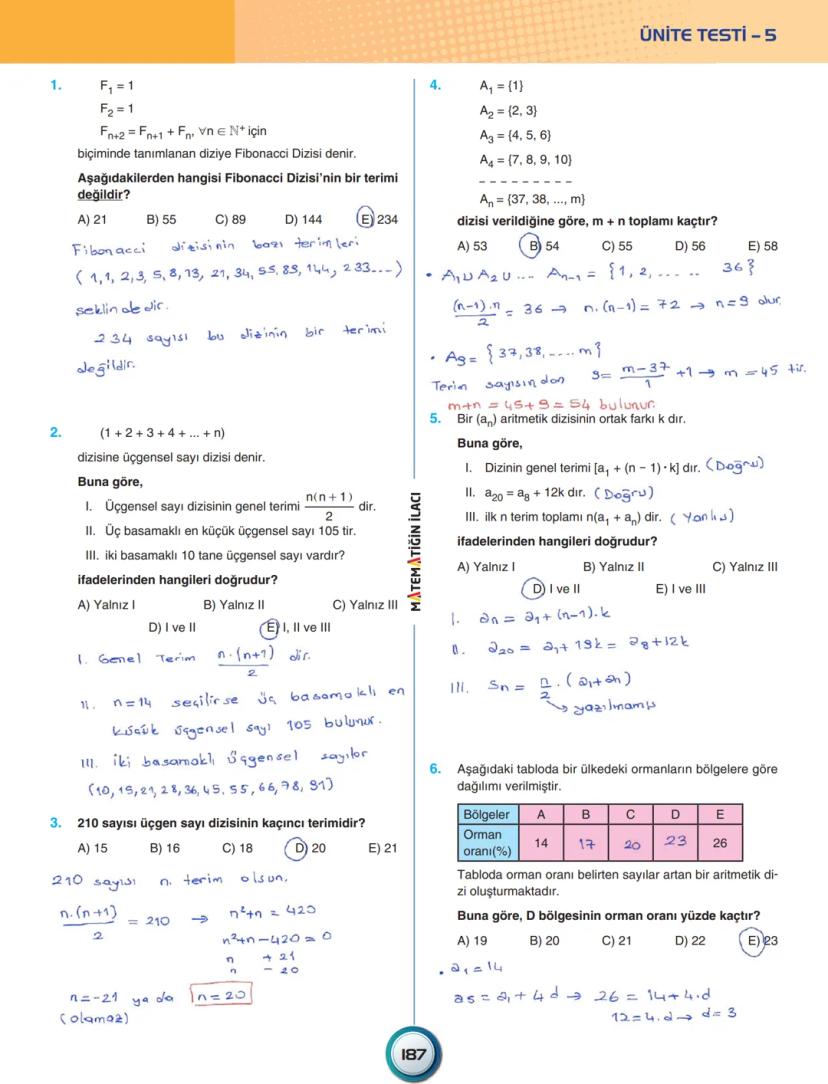 ÜNİTE TESTİ – 5
1. F₁ = 1
F₂ = 1
Fₙ₊₂ = Fₙ₊₁ + Fₙ, ∀n ∈ N⁺ için
biçiminde tanımlanan diziye Fibonacci Dizisi denir.
Aşağıdakilerden hangisi Fibonacci Dizisi’nin bir terimi
değildir?
A) 21 B) 55 C) 89 D) 144 E) 234
Fibonacci dizisinin bazı terimleri
(1,1,2,3,5,8,13,21,34,55,89,144,233...)
şeklindedir.
234 sayısı bu dizinin bir terimi
değildir.
2. (1 + 2 + 3 + 4 + ... + n)
dizisine üçgensel sayı dizisi denir.
Buna göre,
I. Üçgensel sayı dizisinin genel terimi n(n + 1)/2 dir.
II. Üç basamaklı en küçük üçgensel sayı 105 tir.
III. iki basamaklı 10 tane üçgensel sayı vardır?
ifadelerinden hangileri doğrudur?
A) Yalnız I B) Yalnız II C) Yalnız III
D) I ve II E) I, II ve III
I. Genel Terim n.(n+1)/2 dir.
II. n=14 seçilirse üç basamaklı en
küçük üçgensel sayı 105 bulunur.
III. iki basamaklı üçgensel sayılar
(10,15,21,28,36,45,55,66,78,91)
3. 210 sayısı üçgen sayı dizisinin kaçıncı terimidir?
A) 15 B) 16 C) 18 D) 20 E) 21
210 sayısı n. terim olsun.
n.(n+1)/2 = 210 → n²+n = 420
n²+n-420=0
n +21
n -20
n=-21 ya da n=20
(olamaz)
MATEMATİĞİN İLACI
4. A₁ = {1}
A₂ = {2, 3}
A₃ = {4, 5, 6}
A₄ = {7, 8, 9, 10}
- - - - - - - - -
Aₙ = {37, 38, ..., m}
dizisi verildiğine göre, m + n toplamı kaçtır?
A) 53 B) 54 C) 55 D) 56 E) 58
• A₁∪A₂∪... Aₙ₋₁ = {1, 2, ..... 36}
(n-1).n/2 = 36 → n.(n-1) = 72 → n=9 olur.
• A₉ = {37,38,....m}
Terim sayısından 9 = m-37/1 +1 → m=45 tir.
m+n = 45+9 = 54 bulunur.
5. Bir (aₙ) aritmetik dizisinin ortak farkı k dır.
Buna göre,
I. Dizinin genel terimi [a₁ + (n – 1)·k] dır. (Doğru)
II. a₂₀ = a₈ + 12k dır. (Doğru)
III. ilk n terim toplamı n(a₁ + aₙ) dir. (Yanlış)
ifadelerinden hangileri doğrudur?
A) Yalnız I B) Yalnız II C) Yalnız III
D) I ve II E) I ve III
I. aₙ = a₁+(n-1).k
II. a₂₀ = a₁+19k = a₈+12k
III. Sₙ = n/2.(a₁+aₙ)
→ yazılmamış
6. Aşağıdaki tabloda bir ülkedeki ormanların bölgelere göre
dağılımı verilmiştir.
Bölgeler A B C D E
Orman
oranı(%) 14 17 20 23 26
Tabloda orman oranı belirten sayılar artan bir aritmetik di-
zi oluşturmaktadır.
Buna göre, D bölgesinin orman oranı yüzde kaçtır?
A) 19 B) 20 C) 21 D) 22 E) 23
• a₁=14
a₅ = a₁+4d → 26 = 14+4.d
12=4.d → d=3
187